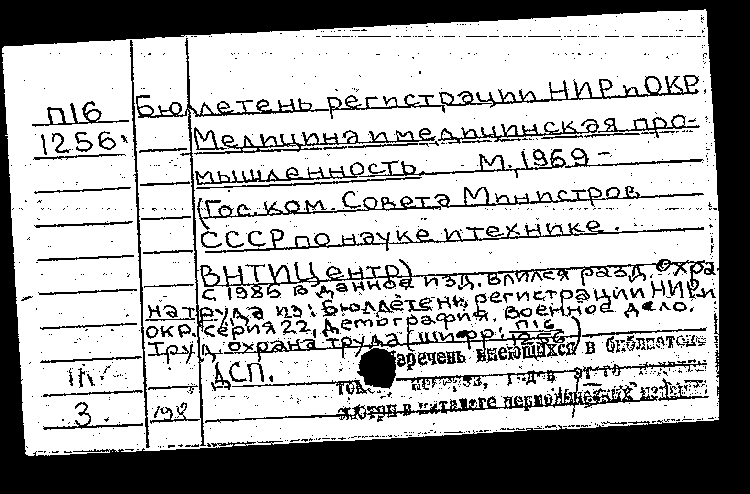 П16 Бюллетень регистрации НИР и ОКР.
1256 Медицина и медицинская про-
мышленность. М., 1969 –
(Гос. ком. Совета Министров
СССР по науке и технике.
ВНТИЦентр)
С 1986 в данное изд. влился разд. Охра-
на труда из: Бюллетень регистрации НИР и
ОКР. Серия 22, Демография. Военное дело.
Труд, охрана труда (шифр: П16
1256)
Перечень имеющихся в библиотеке
ДСП.
номеров, годов этого издания
смотри в каталоге периодических издан
3 198